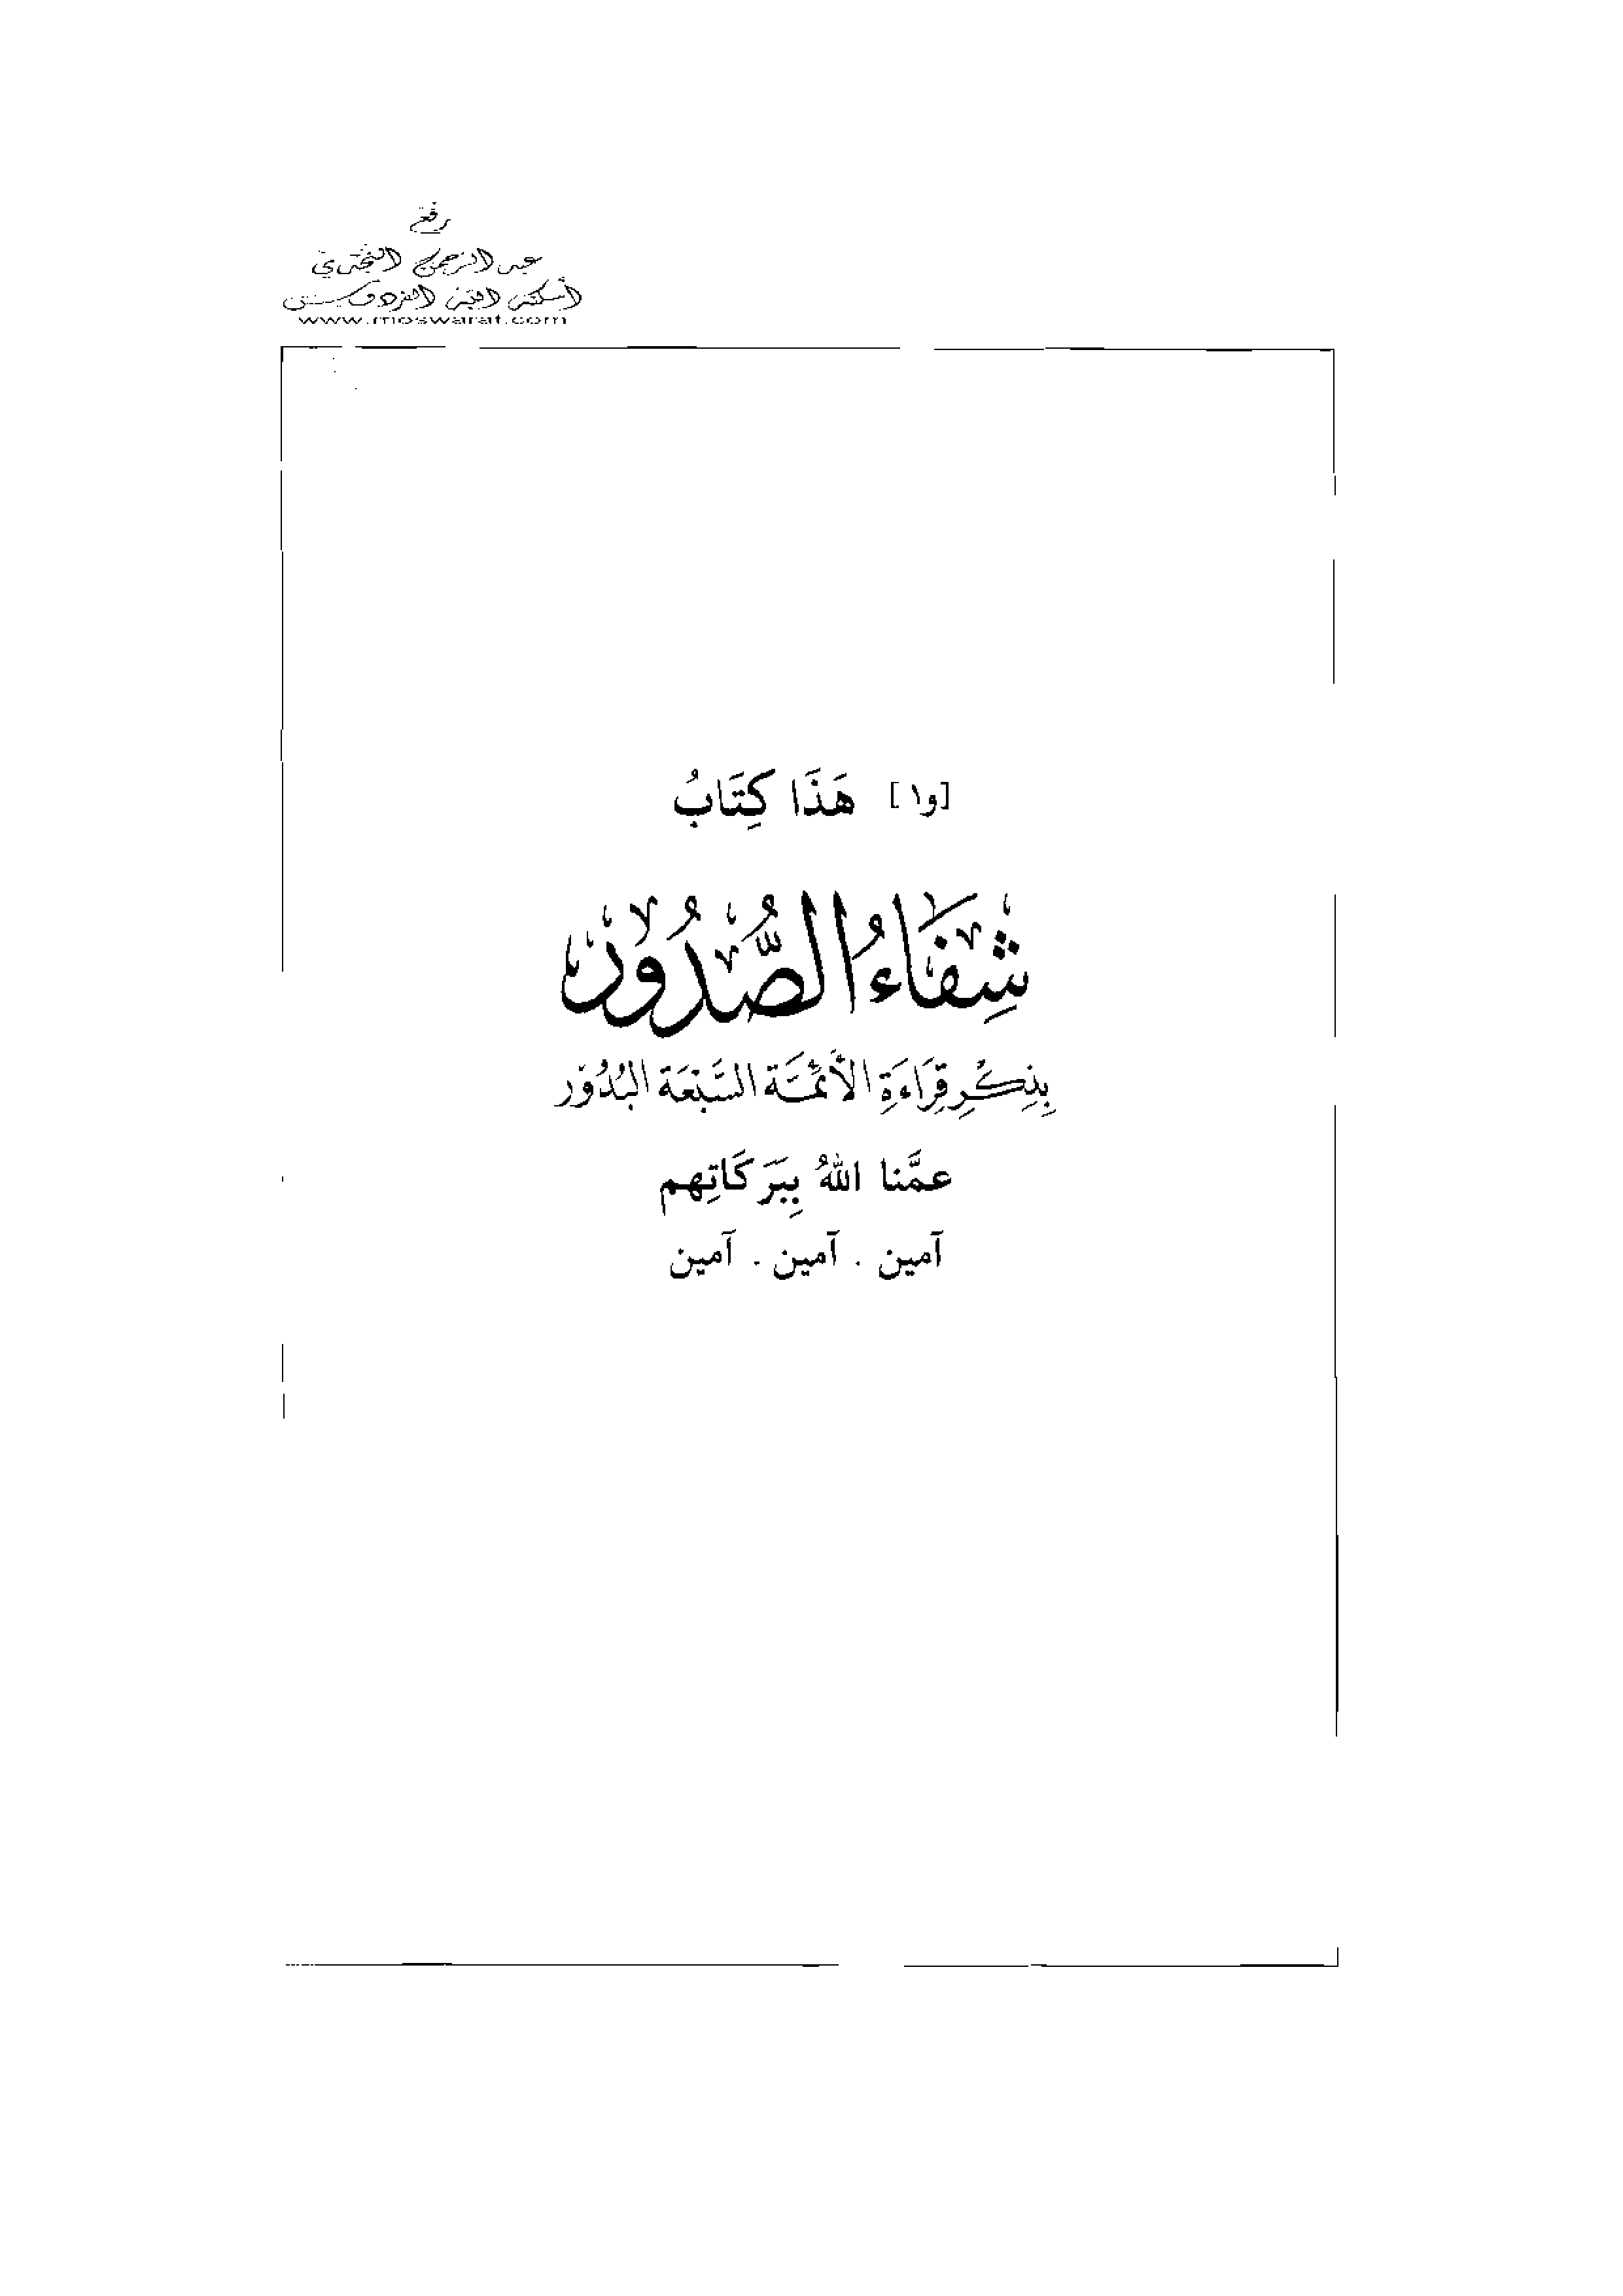 رفع
عبد الرحمن النجدي
أسكنه الله الفردوس
www.moswarat.com
[و١] هَذَا كِتَابُ
شِفَاءُ الصُّدُورِ
بِذِكْرِ قِرَاءَةِ الأَئِمَّةِ السَّبْعَةِ البُدُوْرِ
عمَّنا اللهُ بِبَرَكَاتِهم
آمين . آمين . آمين